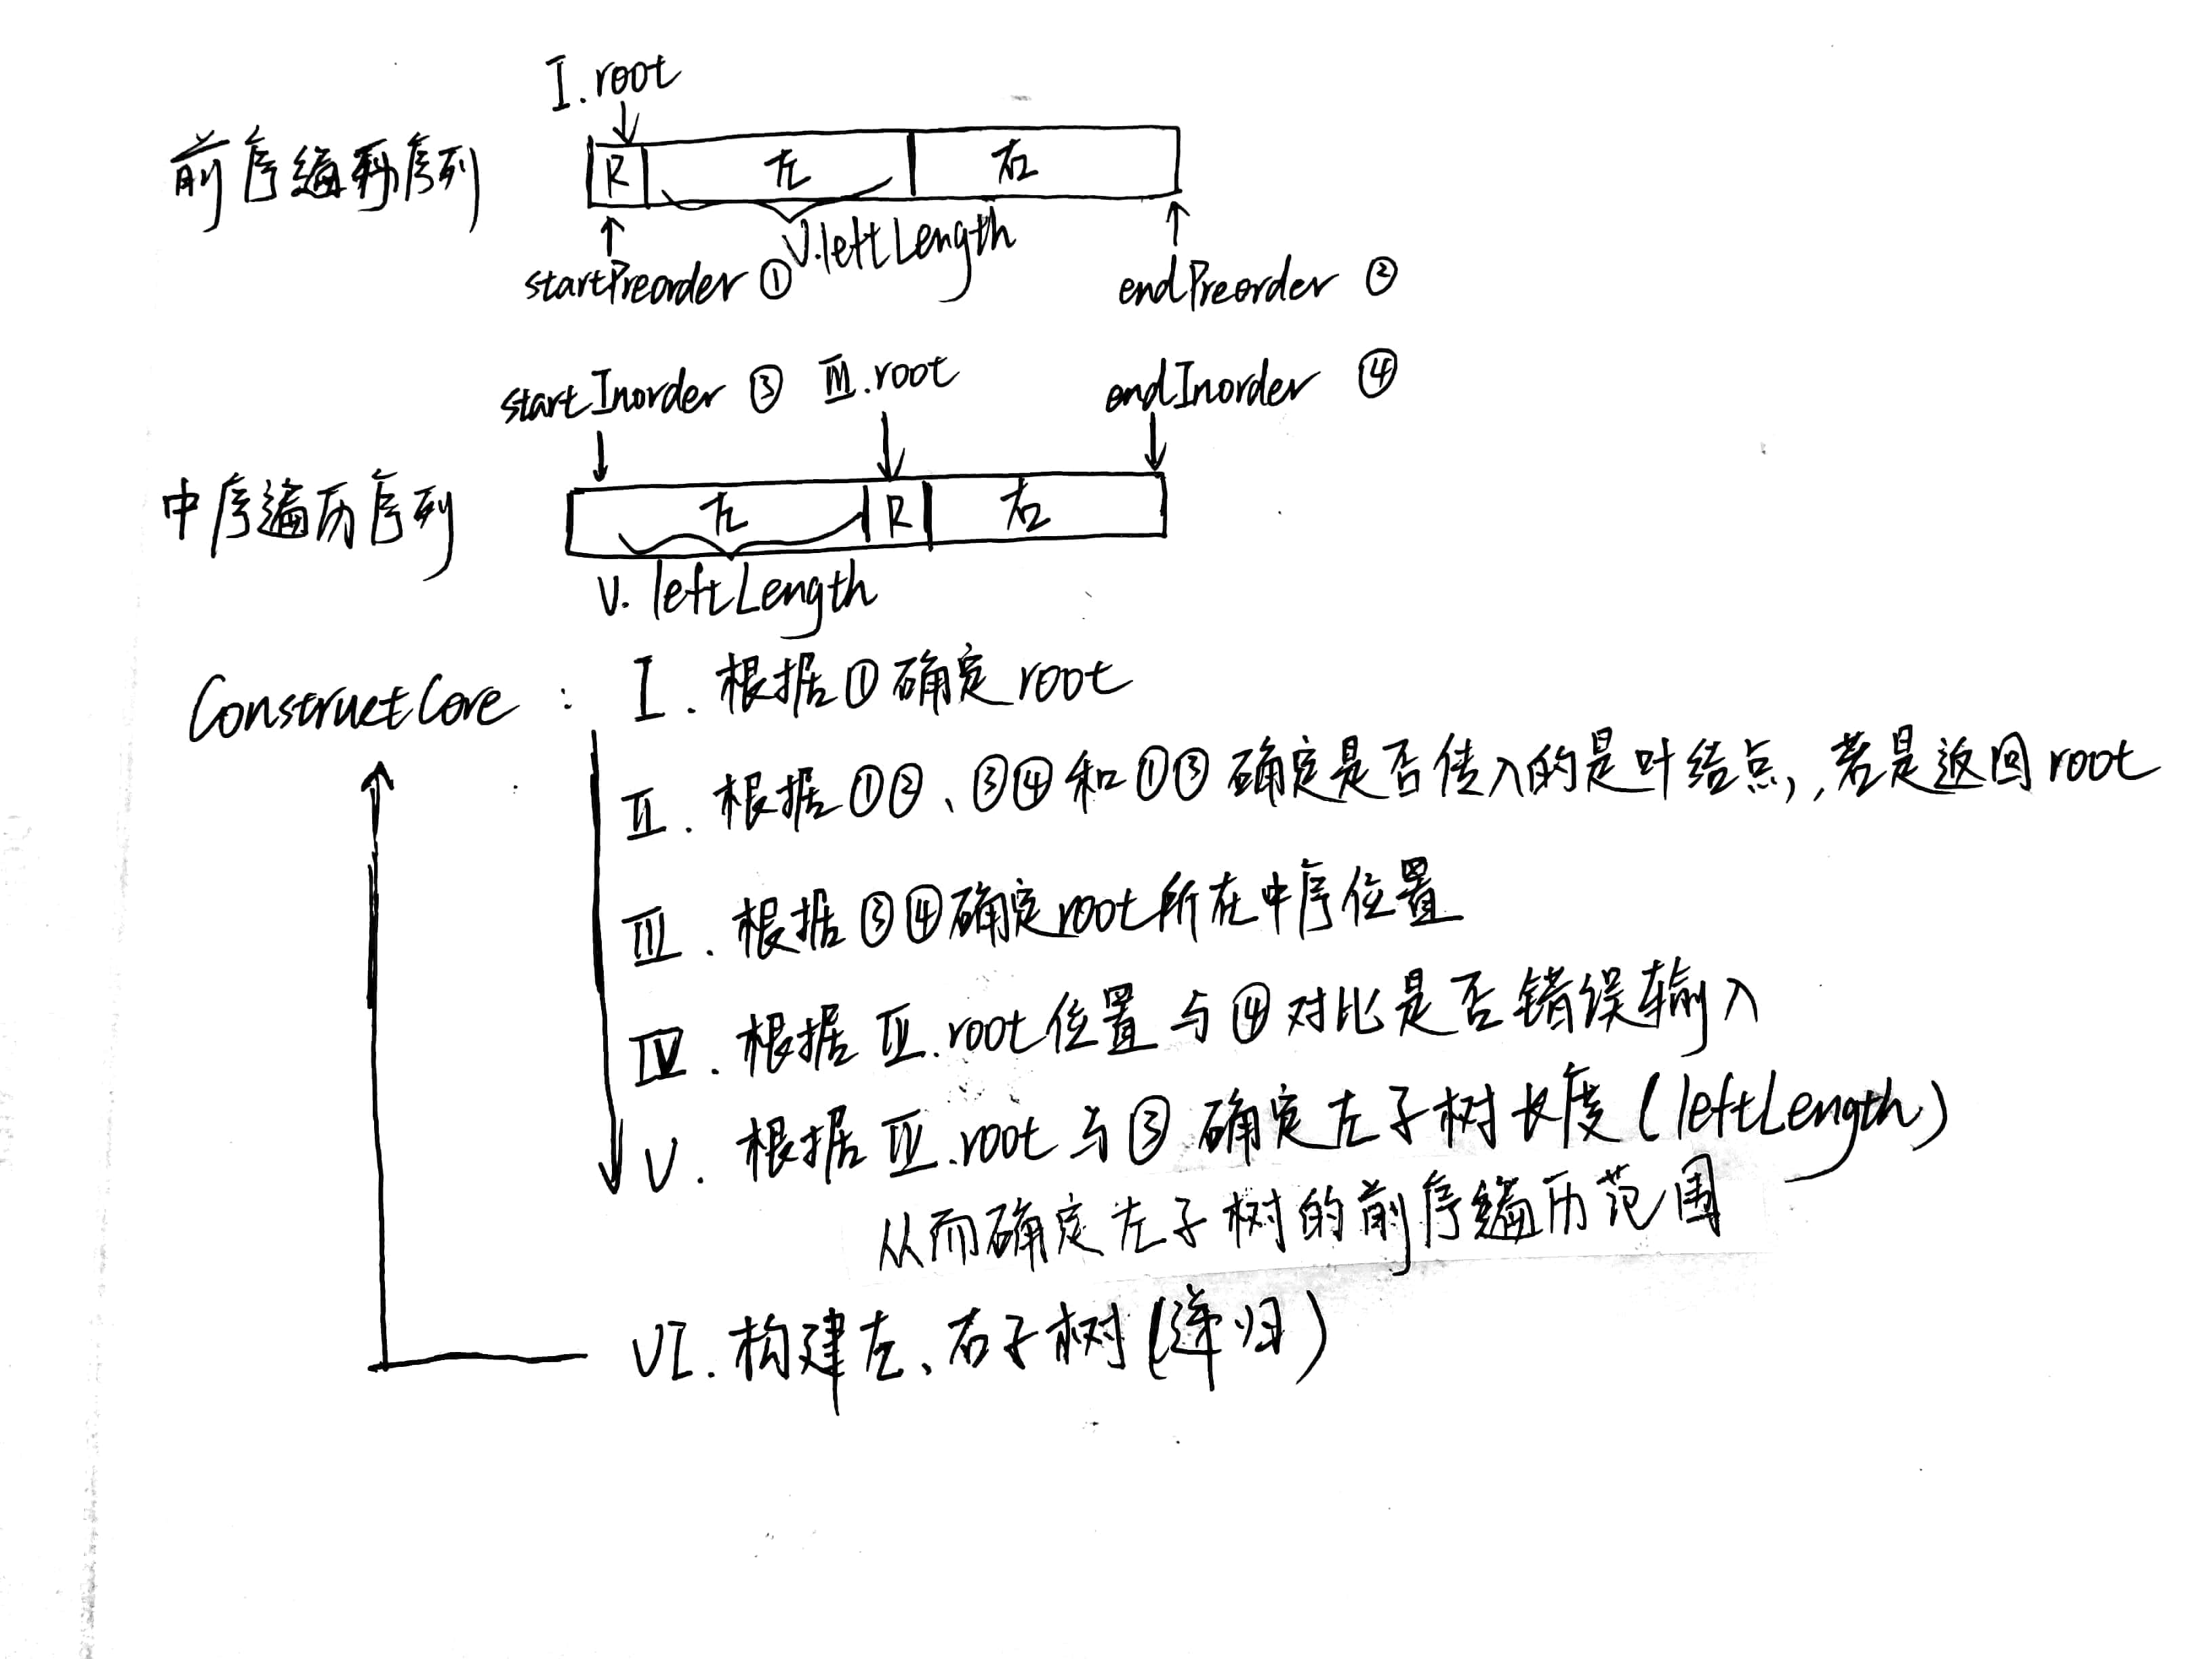 I.root
前序遍历序列
R 左 右
V.leftLength
startPreorder ① endPreorder ②
startInorder ③ Ⅲ.root endInorder ④
中序遍历序列
左 R 右
V. leftLength
ConstructCore : I. 根据①确定root
Ⅱ. 根据①②、③④和①③确定是否传入的是叶结点,若是返回root
Ⅲ. 根据③④确定root所在中序位置
Ⅳ. 根据Ⅲ.root位置与④对比是否错误输入
V. 根据Ⅲ.root与③确定左子树长度(leftLength)
从而确定左子树的前序遍历范围
VI. 构建左、右子树(递归)